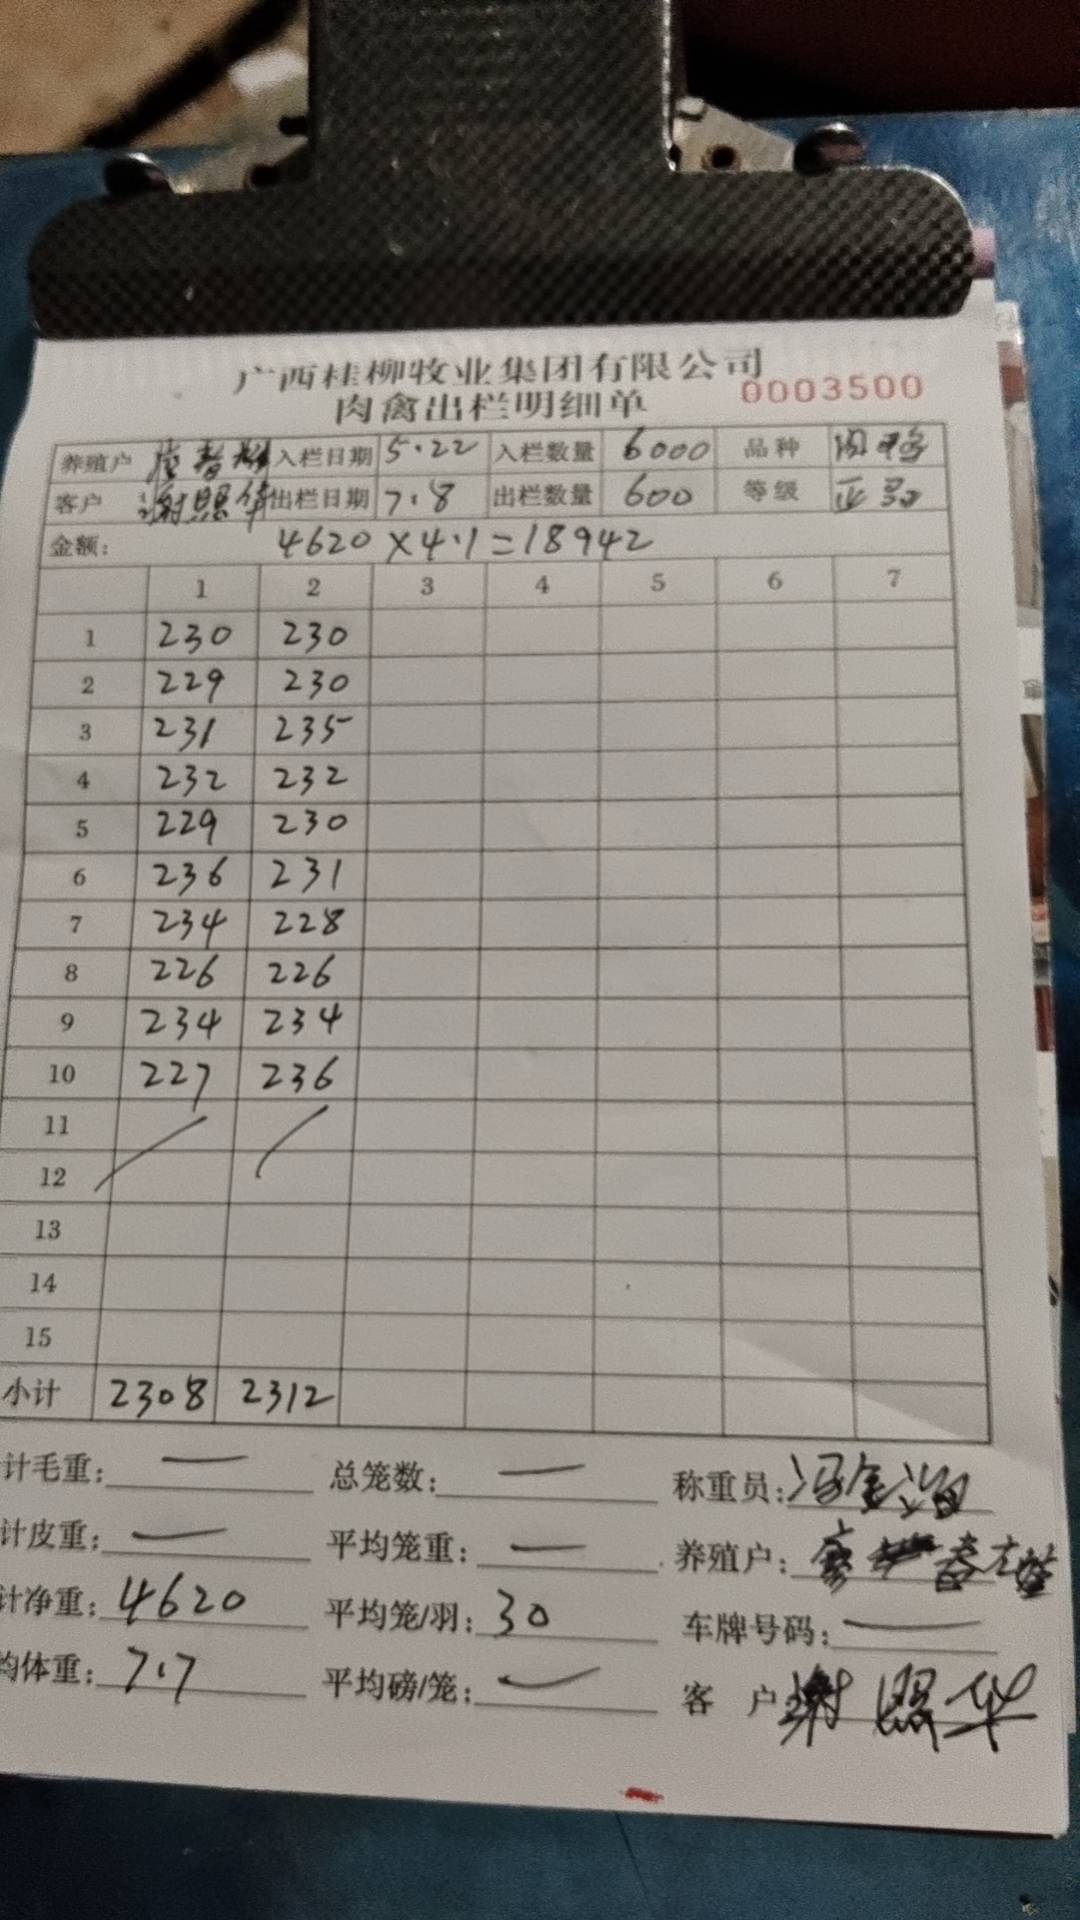 广西桂柳牧业集团有限公司
肉禽出栏明细单 0003500
养殖户 入栏日期 5.22 入栏数量 6000 品种 肉鸭
客户 谢照华 出栏日期 7.8 出栏数量 600 等级 正品
金额: 4620×4.1=18942
1 2 3 4 5 6 7
1 230 230
2 229 230
3 231 235
4 232 232
5 229 230
6 236 231
7 234 228
8 226 226
9 234 234
10 227 236
11
12
13
14
15
小计 2308 2312
计毛重: — 总笼数: — 称重员:
计皮重: — 平均笼重: — 养殖户:
计净重: 4620 平均笼/羽: 30 车牌号码: —
均体重: 7.7 平均磅/笼: — 客户 谢照华